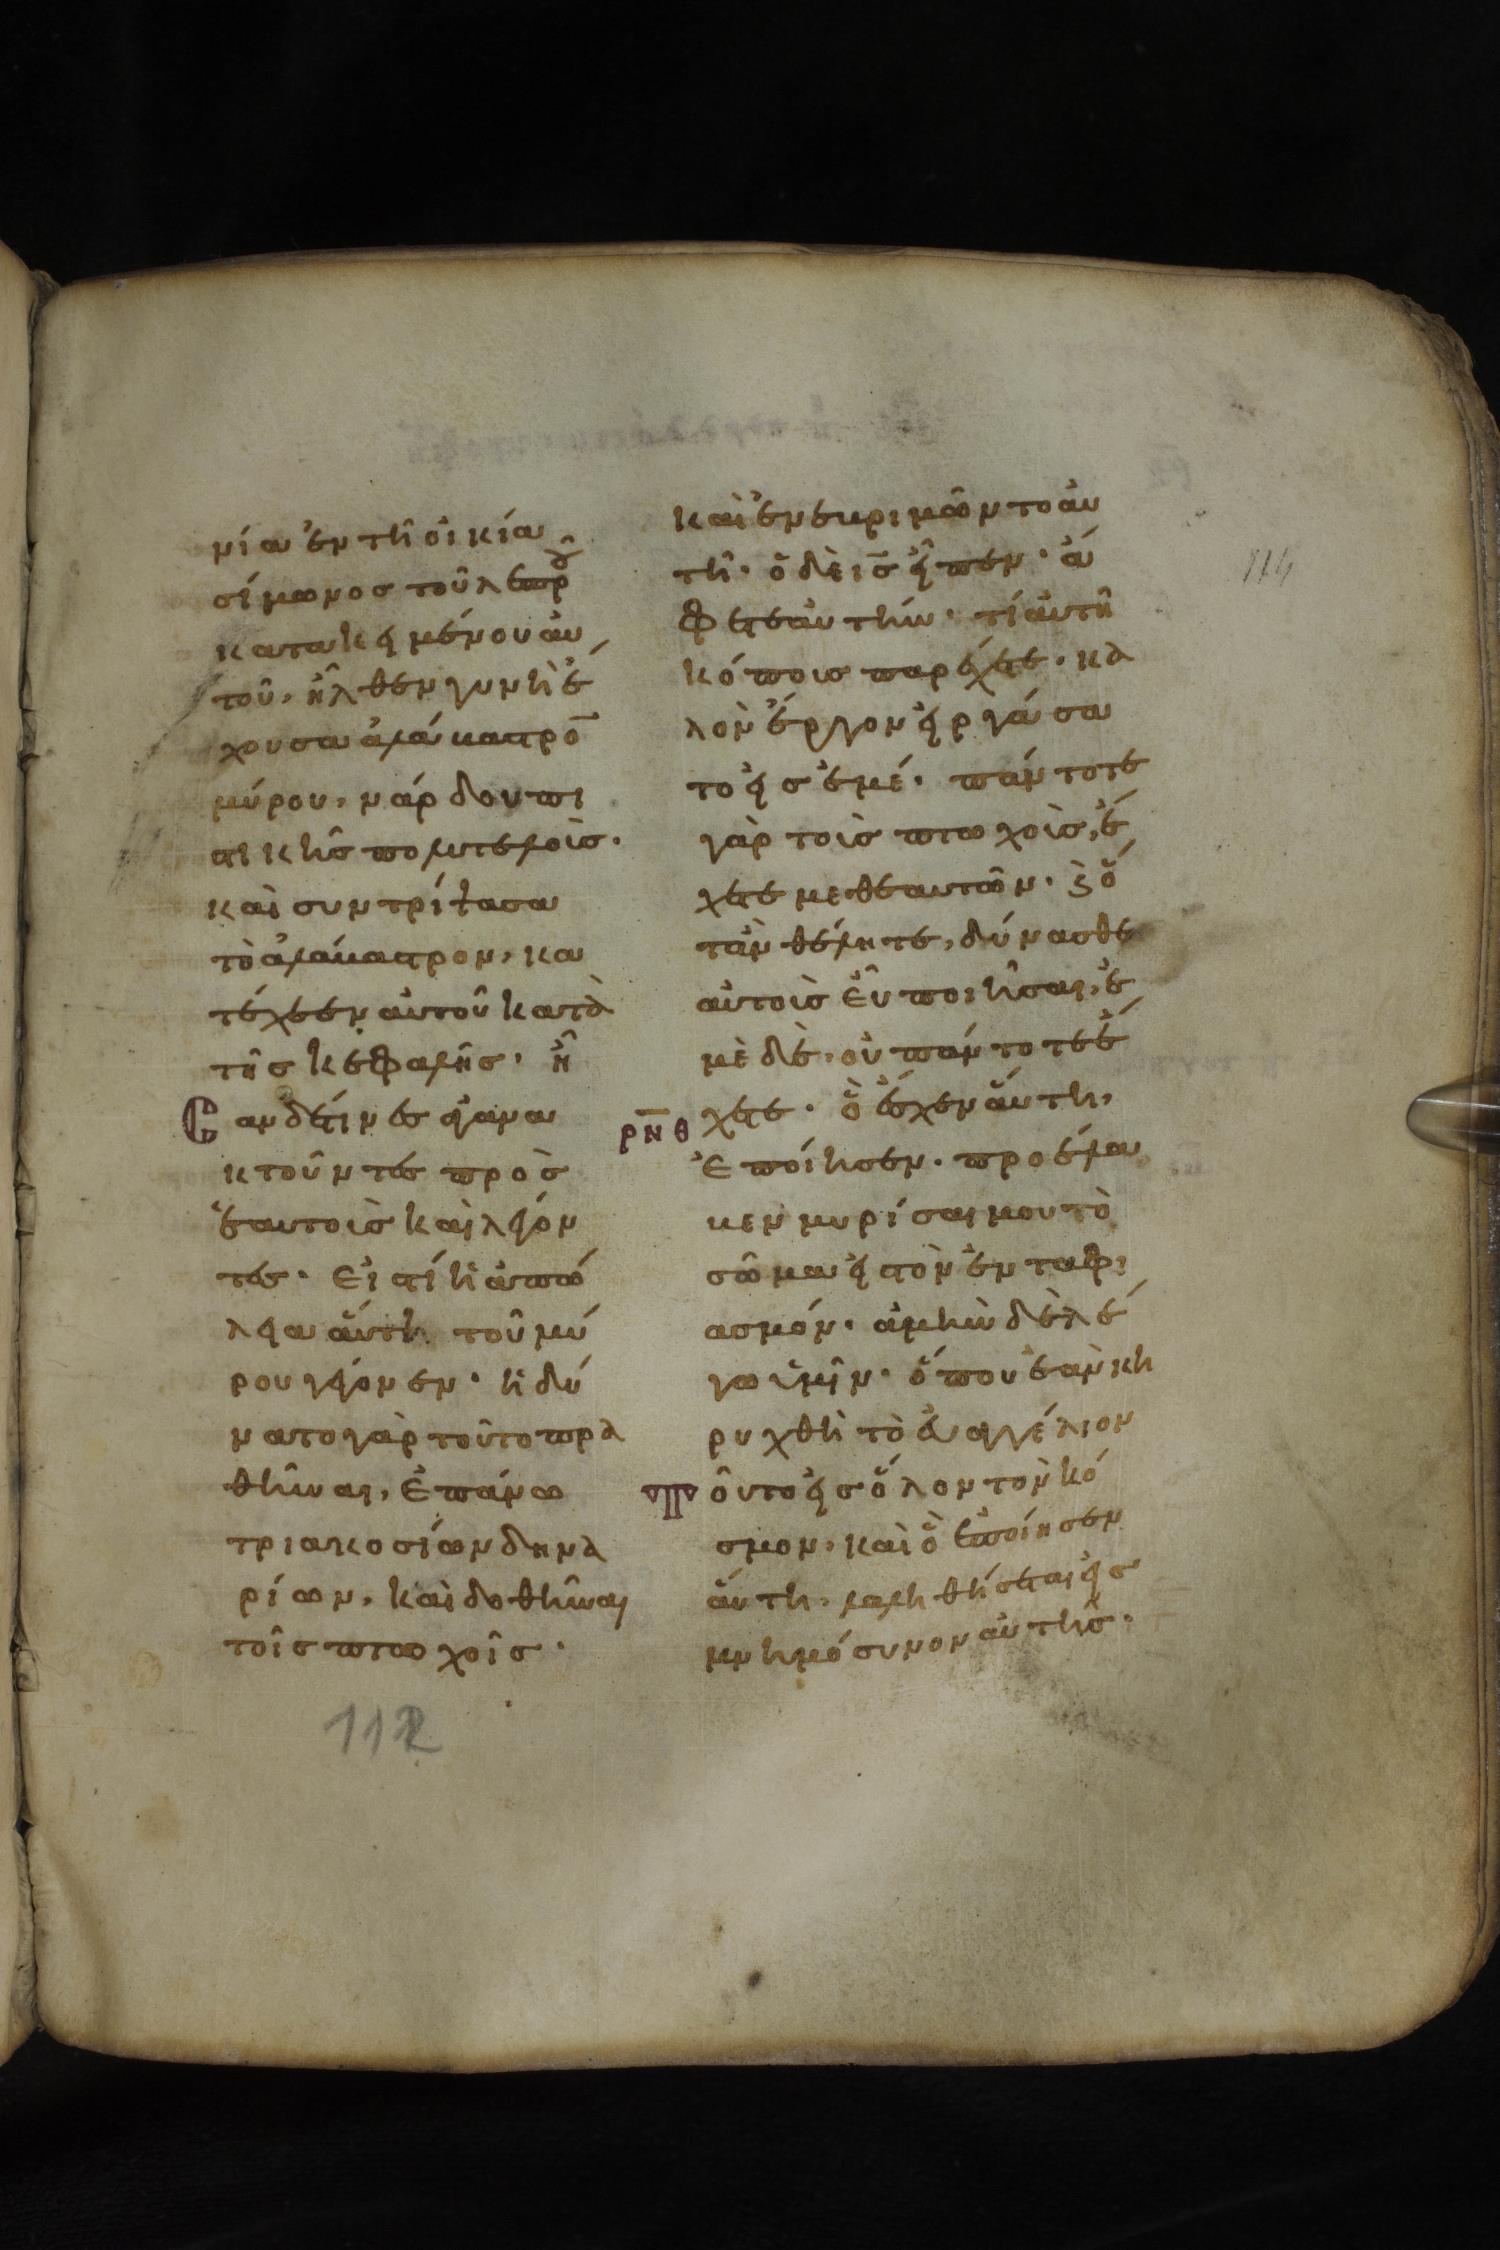 νία ἐν τῆ οἰκία
σίμωνος τοῦ λεπροῦ
κατακειμένου αὐ
τοῦ, ἦλθεν γυνὴ ἔ
χουσα ἀλάβαστρο̄
μύρου, νάρδου πι
στικῆς πολυτελοῖς·
καὶ συντρίψασα
τὸ ἀλάβαστρον, κα
τέχεεν αὐτοῦ κατὰ
τῆς κεφαλῆς· ἦ
σαν δέ τινες ἀγανα
κτοῦντες πρὸς
ἑαυτοὺς καὶ λέγον
τες· εἰς τί ἡ ἀπώ
λεια αὕτη τοῦ μύ
ρου γέγονεν· ἠδύ
νατο γὰρ τοῦτο πρα
θῆναι, ἐπάνω
τριακοσίων δηνα
ρίων, καὶ δοθῆναι
τοῖς πτωχοῖς·
112
καὶ ἐνεβριμῶντο αὐ
τῆ· ὁ δὲ ις̄ εἶπεν· ἄ
φετε αὐτήν· τί αὐτῆ
κόπους παρέχετε· κα
λὸν ἔργον εἰργάσα
το εἰς ἐμέ· πάντοτε
γὰρ τοὺς πτωχοὺς, ἔ
χετε μεθεαυτῶν· ϗ ὅ
τὰν θέλητε, δύνασθε
αὐτοὺς εὖ ποιῆσαι, ἐ
μὲ δὲ, οὐ πάντοτε ἔ
ρνθ χετε· ὃ ἔσχεν αὕτη,
ἐποίησεν· προέλα
βεν μυρίσαι μου τὸ
σῶμα εἰς τὸν ἐνταφι
ασμόν· ἀμὴν δὲ λέ
γω ὑμῖν· ὅπου ἐὰν κη
ρυχθῆ τὸ εὐαγγέλιον
τοῦτο εἰς ὅλον τὸν κό
σμον, καὶ ὃ ἐποίησεν
αὕτη, λαληθήσεται εἰς
μνημόσυνον αὐτῆς·
114